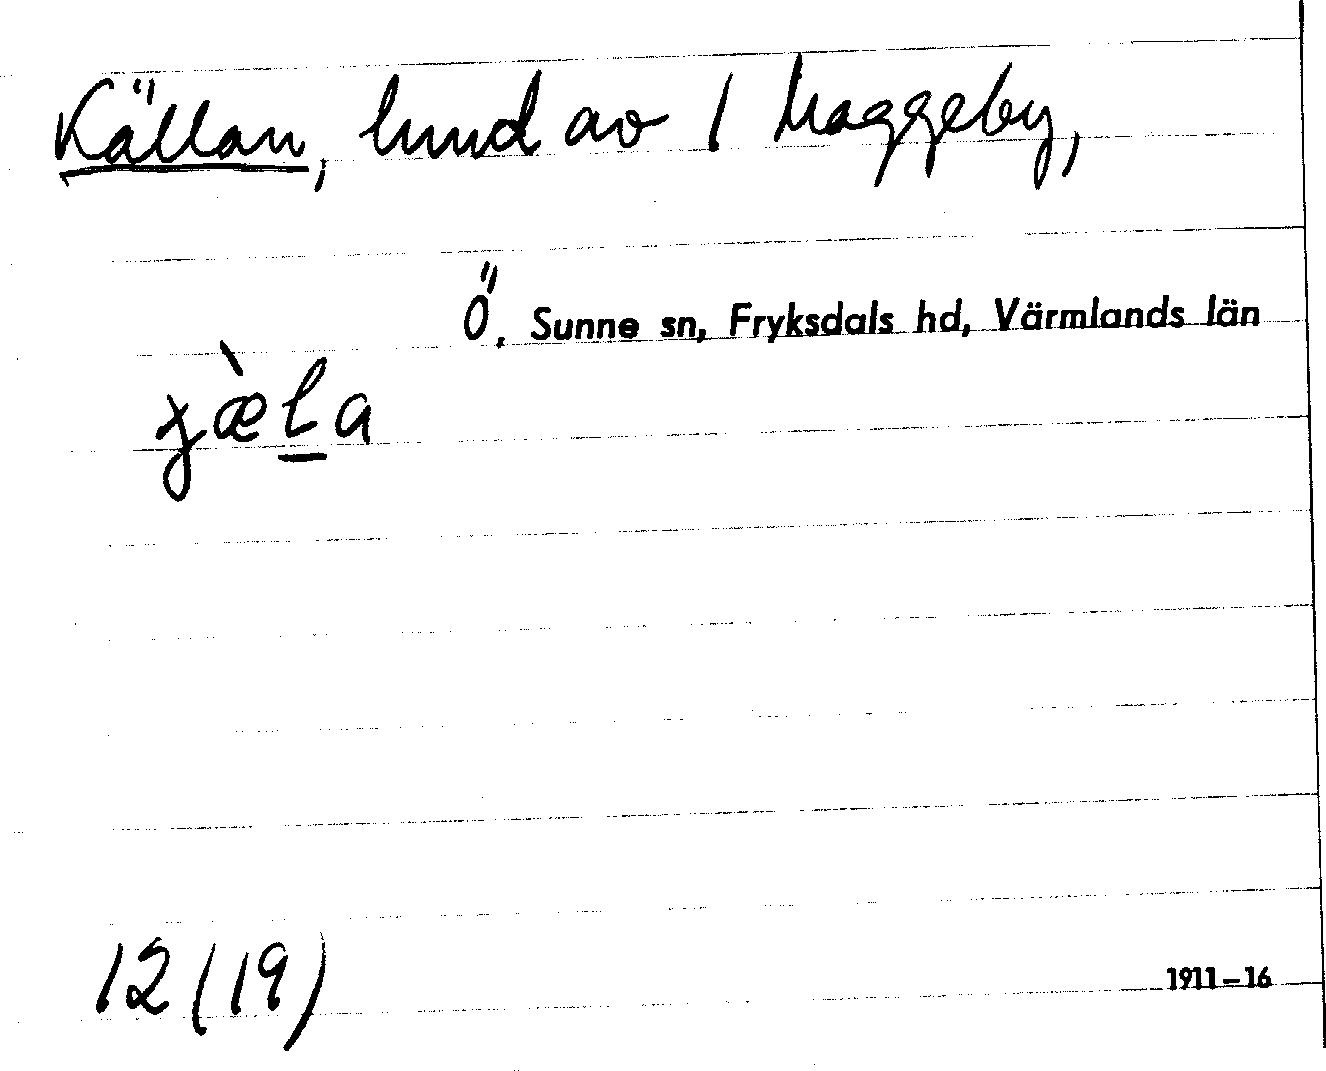 Källan, lund av 1 Maggeby,
Ö, Sunne sn, Fryksdals hd, Värmlands län
ɟæ̀l̲a
12 (19)
1911–16